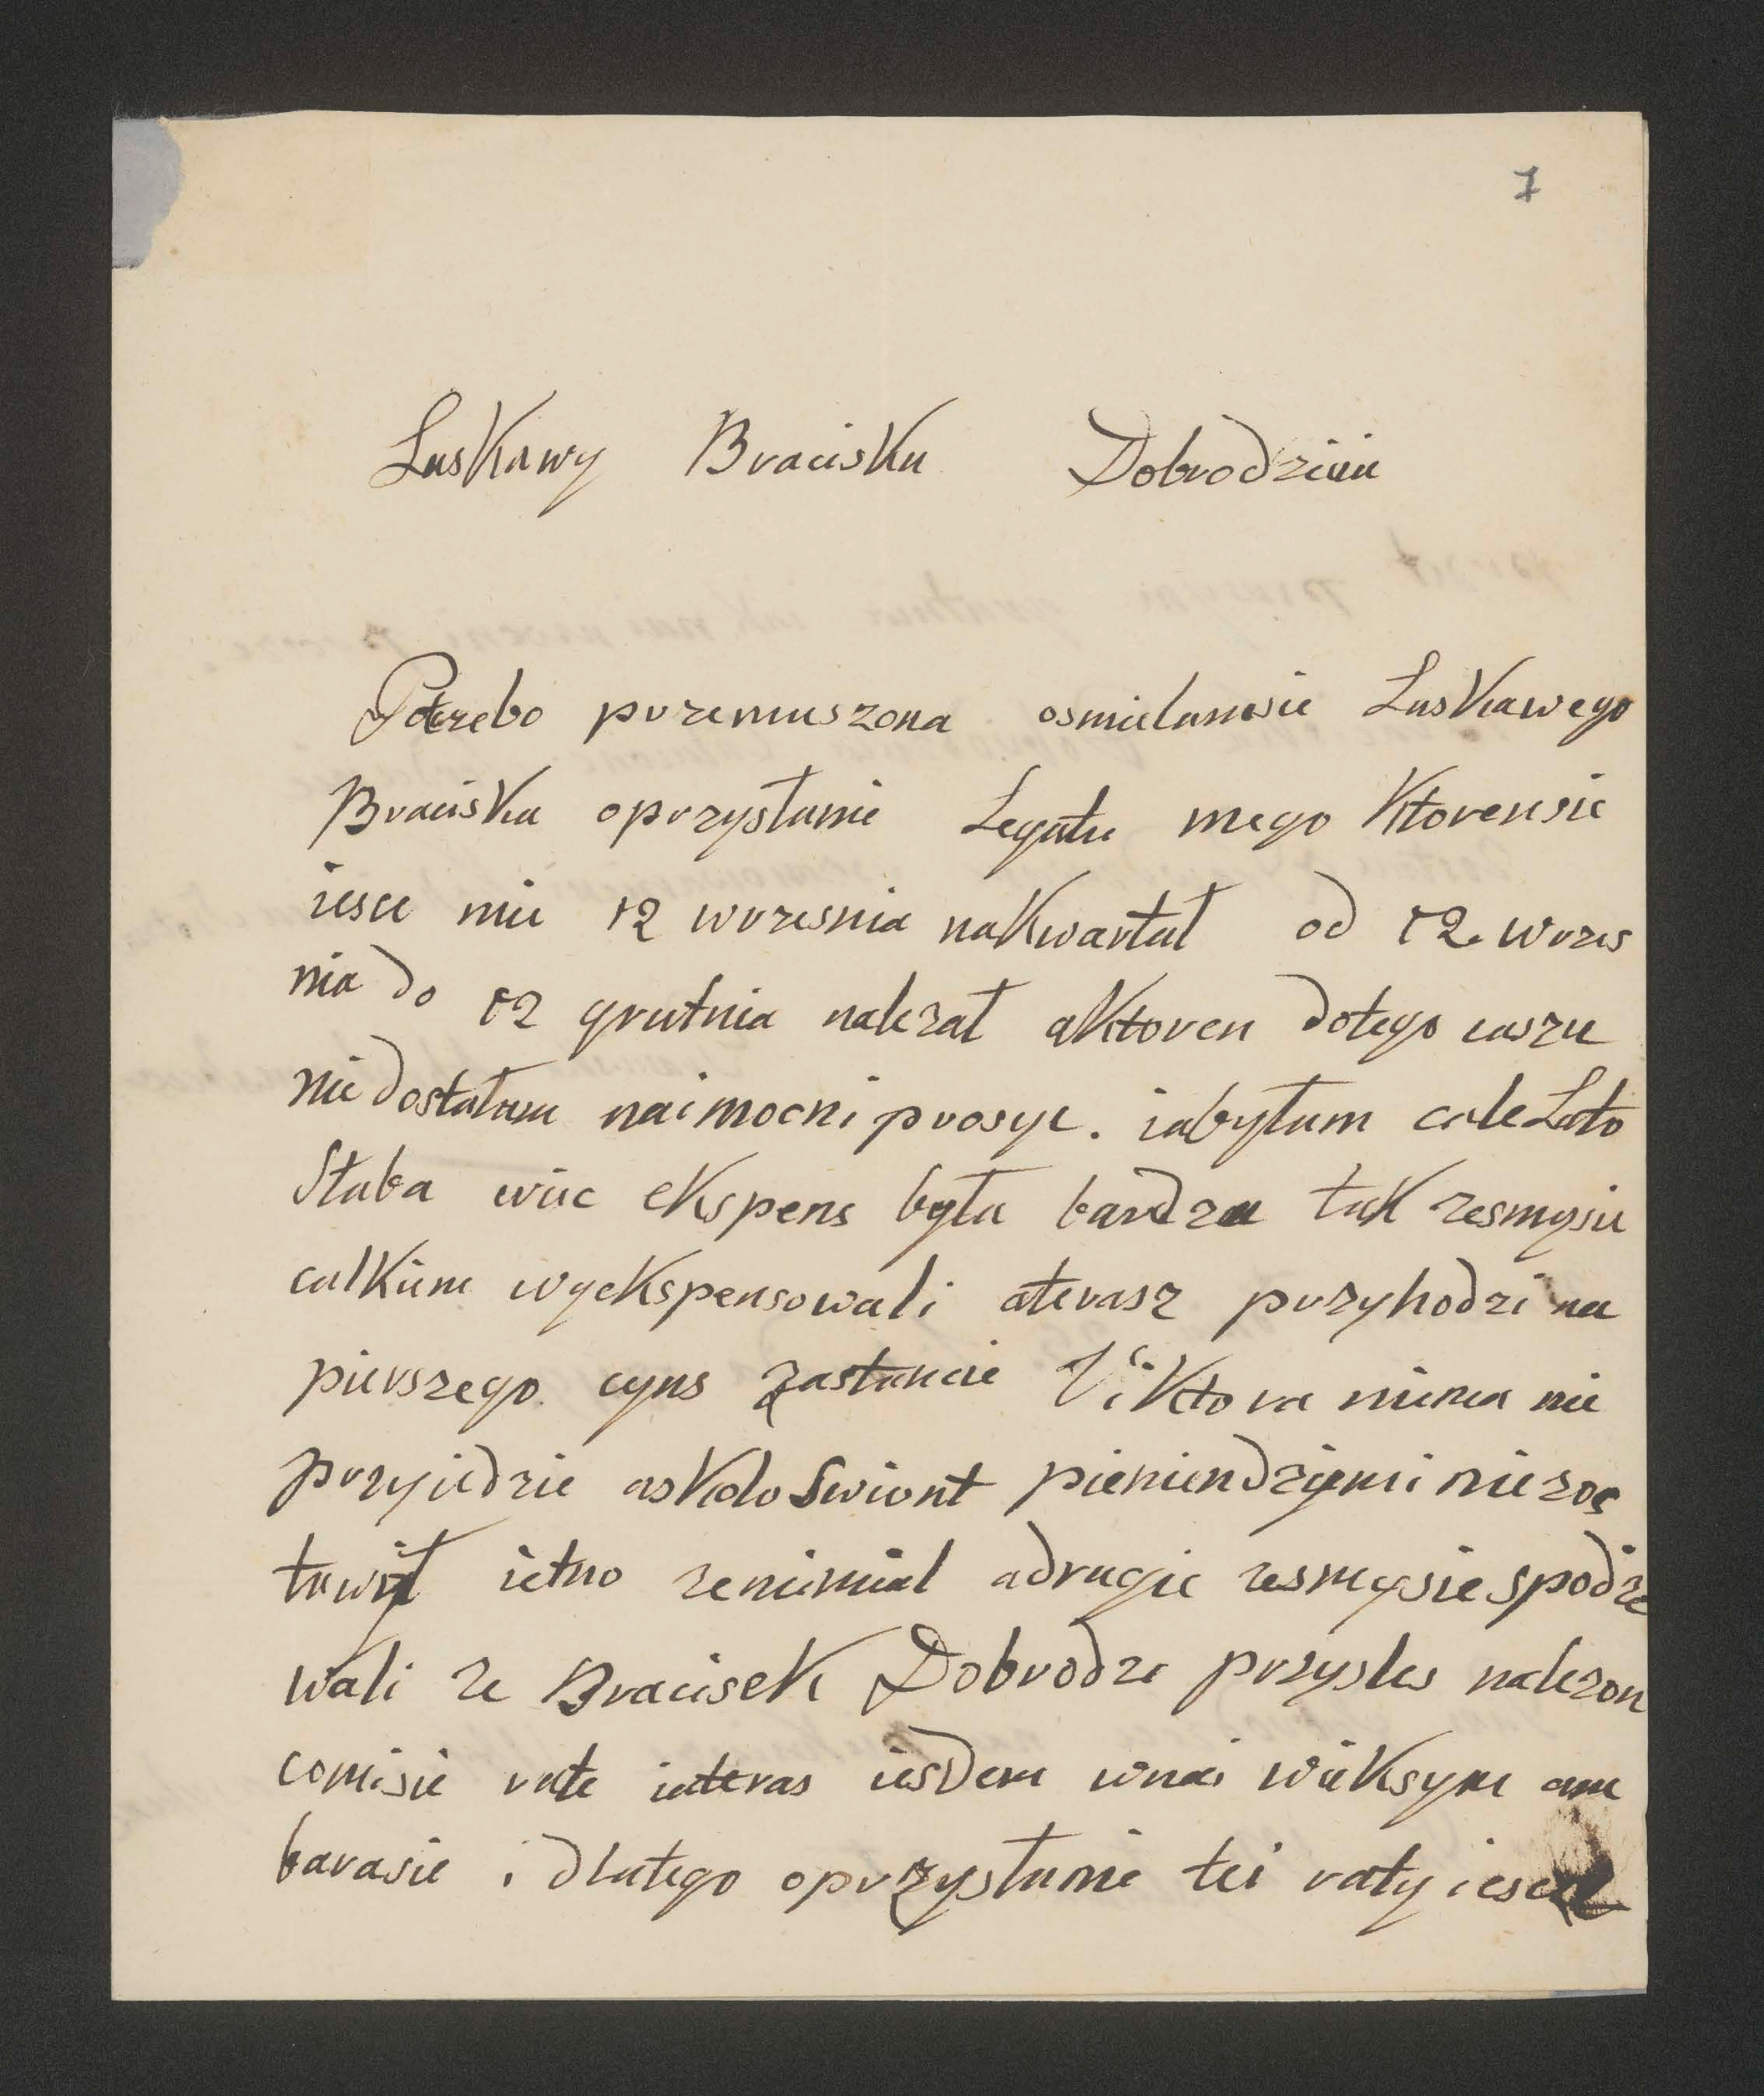 7
Laskawy Bracisku Dobrodzieiu
Potrzebo przemuszona osmielamsie Laskawego
Braciska oprzysłanie Legatu mego Ktorensie
iesce mie 12 wrzesnia naKwartał od 12. wrzes
nia do 12 grutnia nalezał aKtoren dotego caszu
nie dostałam naimocni prosyc. iabyłam cale Lato
Słaba wiec eKspens była bardza tak zesmysie
calkiem wyekspensowali aterasz przyhodzi na
pierszego cyns zastancie Viktora niema nie
przyiedzie asKolo Swiont pieniendzymi niezos
tawił ietno zenimial adrugie zesmysiespodze
wali ze Bracisek Dobrodzi przysles nalezon
comisie rate iateras iesdem wnai wieKsym am
barasie i dlatego oprzysłanie tei raty iesce